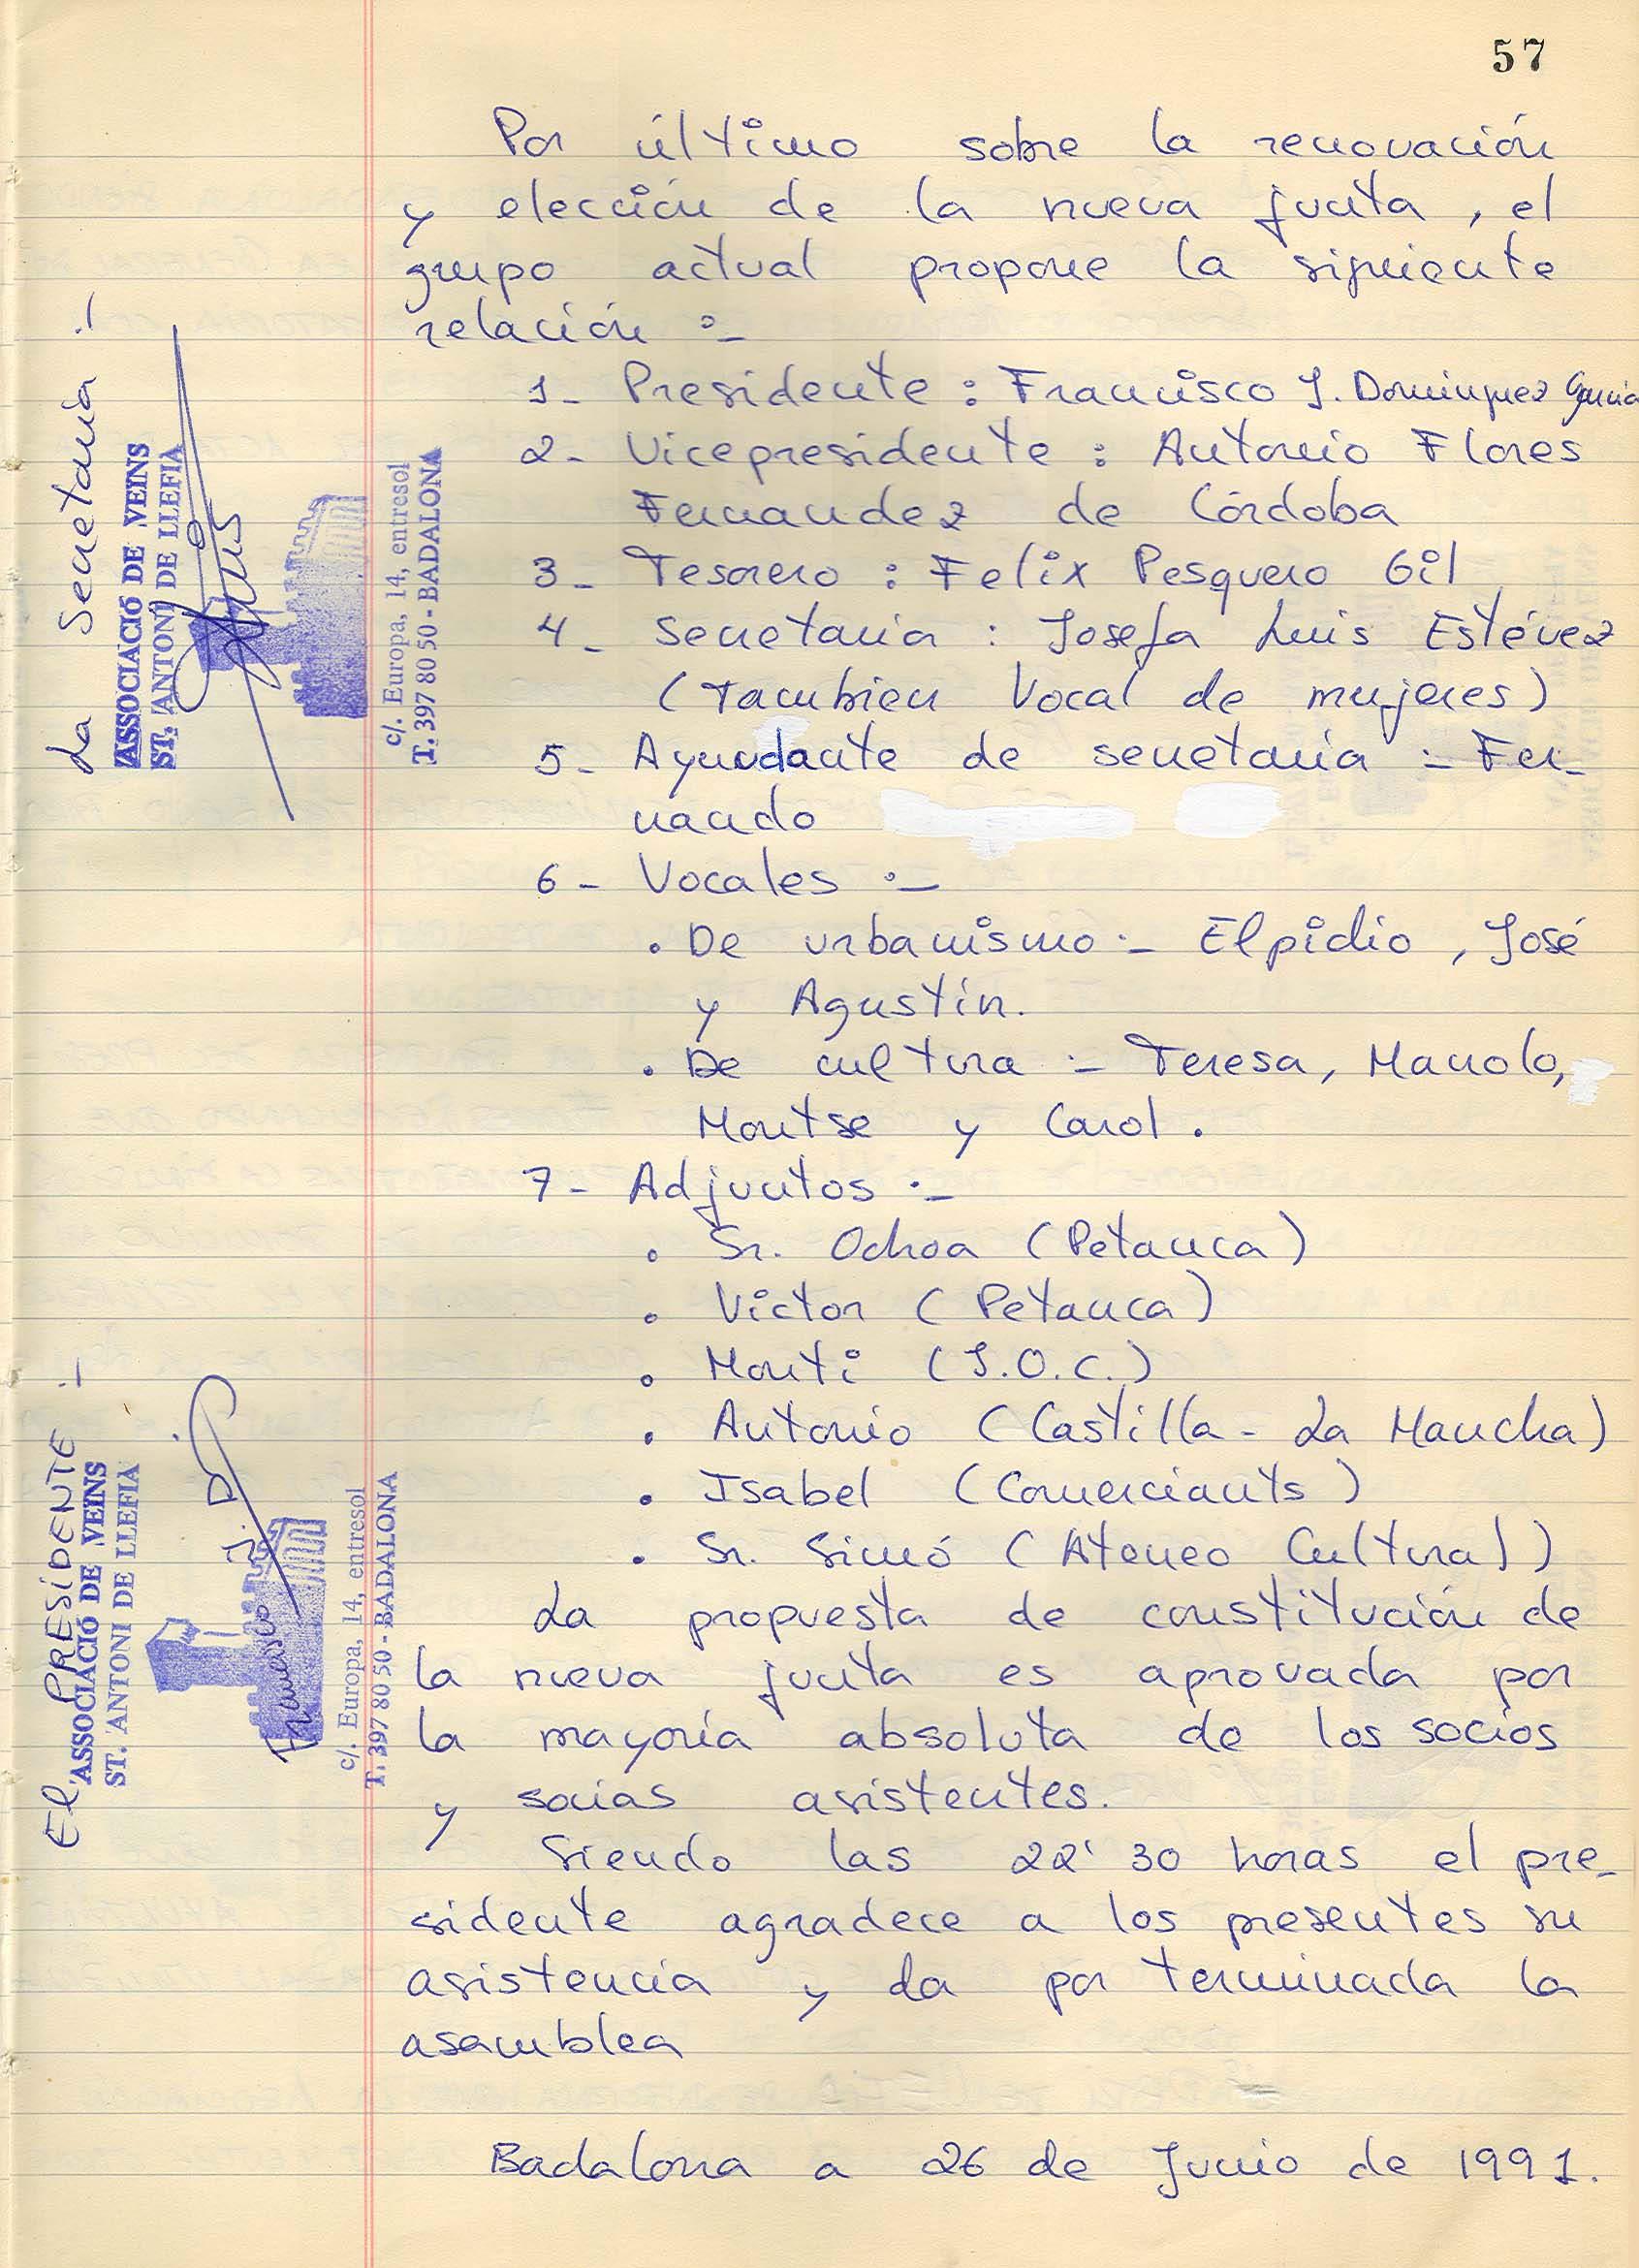 57
Por último sobre la renovación
y elección de la nueva junta, el
grupo actual propone la siguiente
relación :-
1- Presidente : Francisco J. Dominguez Garcia
2- Vicepresidente : Antonio Flores
Fernandez de Córdoba
3- Tesorero : Felix Pesquero Gil
4- Secretaria : Josefa Luis Estévez
(Tambien Vocal de mujeres)
5- Ayudante de secretaria :- Fer-
nando
6- Vocales :-
• De urbanismo :- Elpidio, José
y Agustín.
• De cultura :- Teresa, Manolo,
Montse y Carol.
7- Adjuntos :-
• Sr. Ochoa (Petanca)
• Victor (Petanca)
• Monti (J.O.C.)
• Antonio (Castilla-La Mancha)
• Isabel (Comerciants)
• Sr. Simó (Ateneo Cultural)
La propuesta de constitución de
la nueva junta es aprovada por
la mayoría absoluta de los socios
y socias asistentes.
Siendo las 22'30 horas el pre-
sidente agradece a los presentes su
asistencia y da por terminada la
asamblea
Badalona a 26 de Junio de 1991.
La Secretaria :-
ASSOCIACIÓ DE VEINS
ST. ANTONI DE LLEFIÀ
Luis
c/. Europa, 14, entresol
T. 397 80 50 - BADALONA
El PRESIDENTE :-
ASSOCIACIÓ DE VEINS
ST. ANTONI DE LLEFIÀ
Francisco J. D.
c/. Europa, 14, entresol
T. 397 80 50 - BADALONA